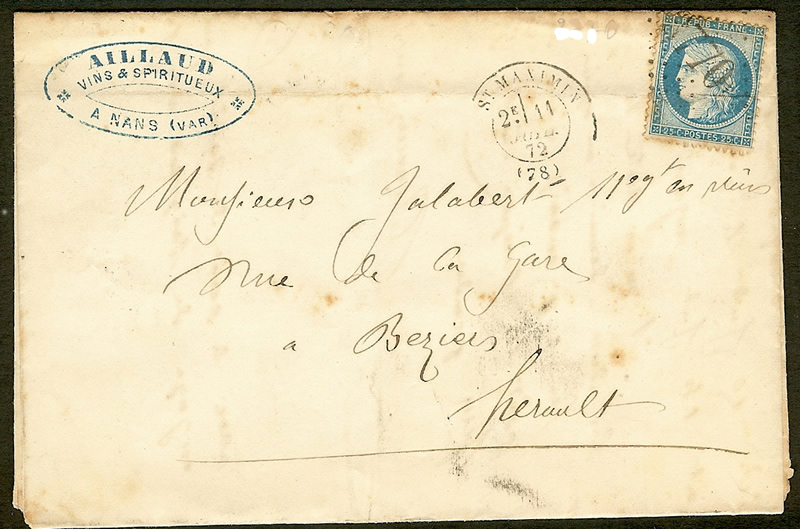 AILLAUD
VINS & SPIRITUEUX
A NANS (VAR)
ST MAXIMIN
2E 11
JUIL.
72
(78)
REPUB. FRANC.
25 C. POSTES 25 C.
Monsieur Jalabert Negt en vins
Rue de la Gare
a Beziers
Herault